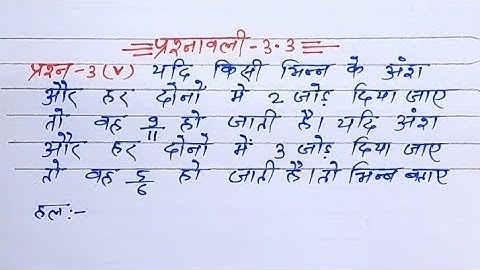 प्रश्नावली - 3.3
प्रश्न - 3 (v) यदि किसी भिन्न के अंश
और हर दोनों में 2 जोड़ दिया जाए
तो वह 9/11 हो जाती है। यदि अंश
और हर दोनों में 3 जोड़ दिया जाए
तो वह 5/6 हो जाती है। तो भिन्न बताए
हल :-